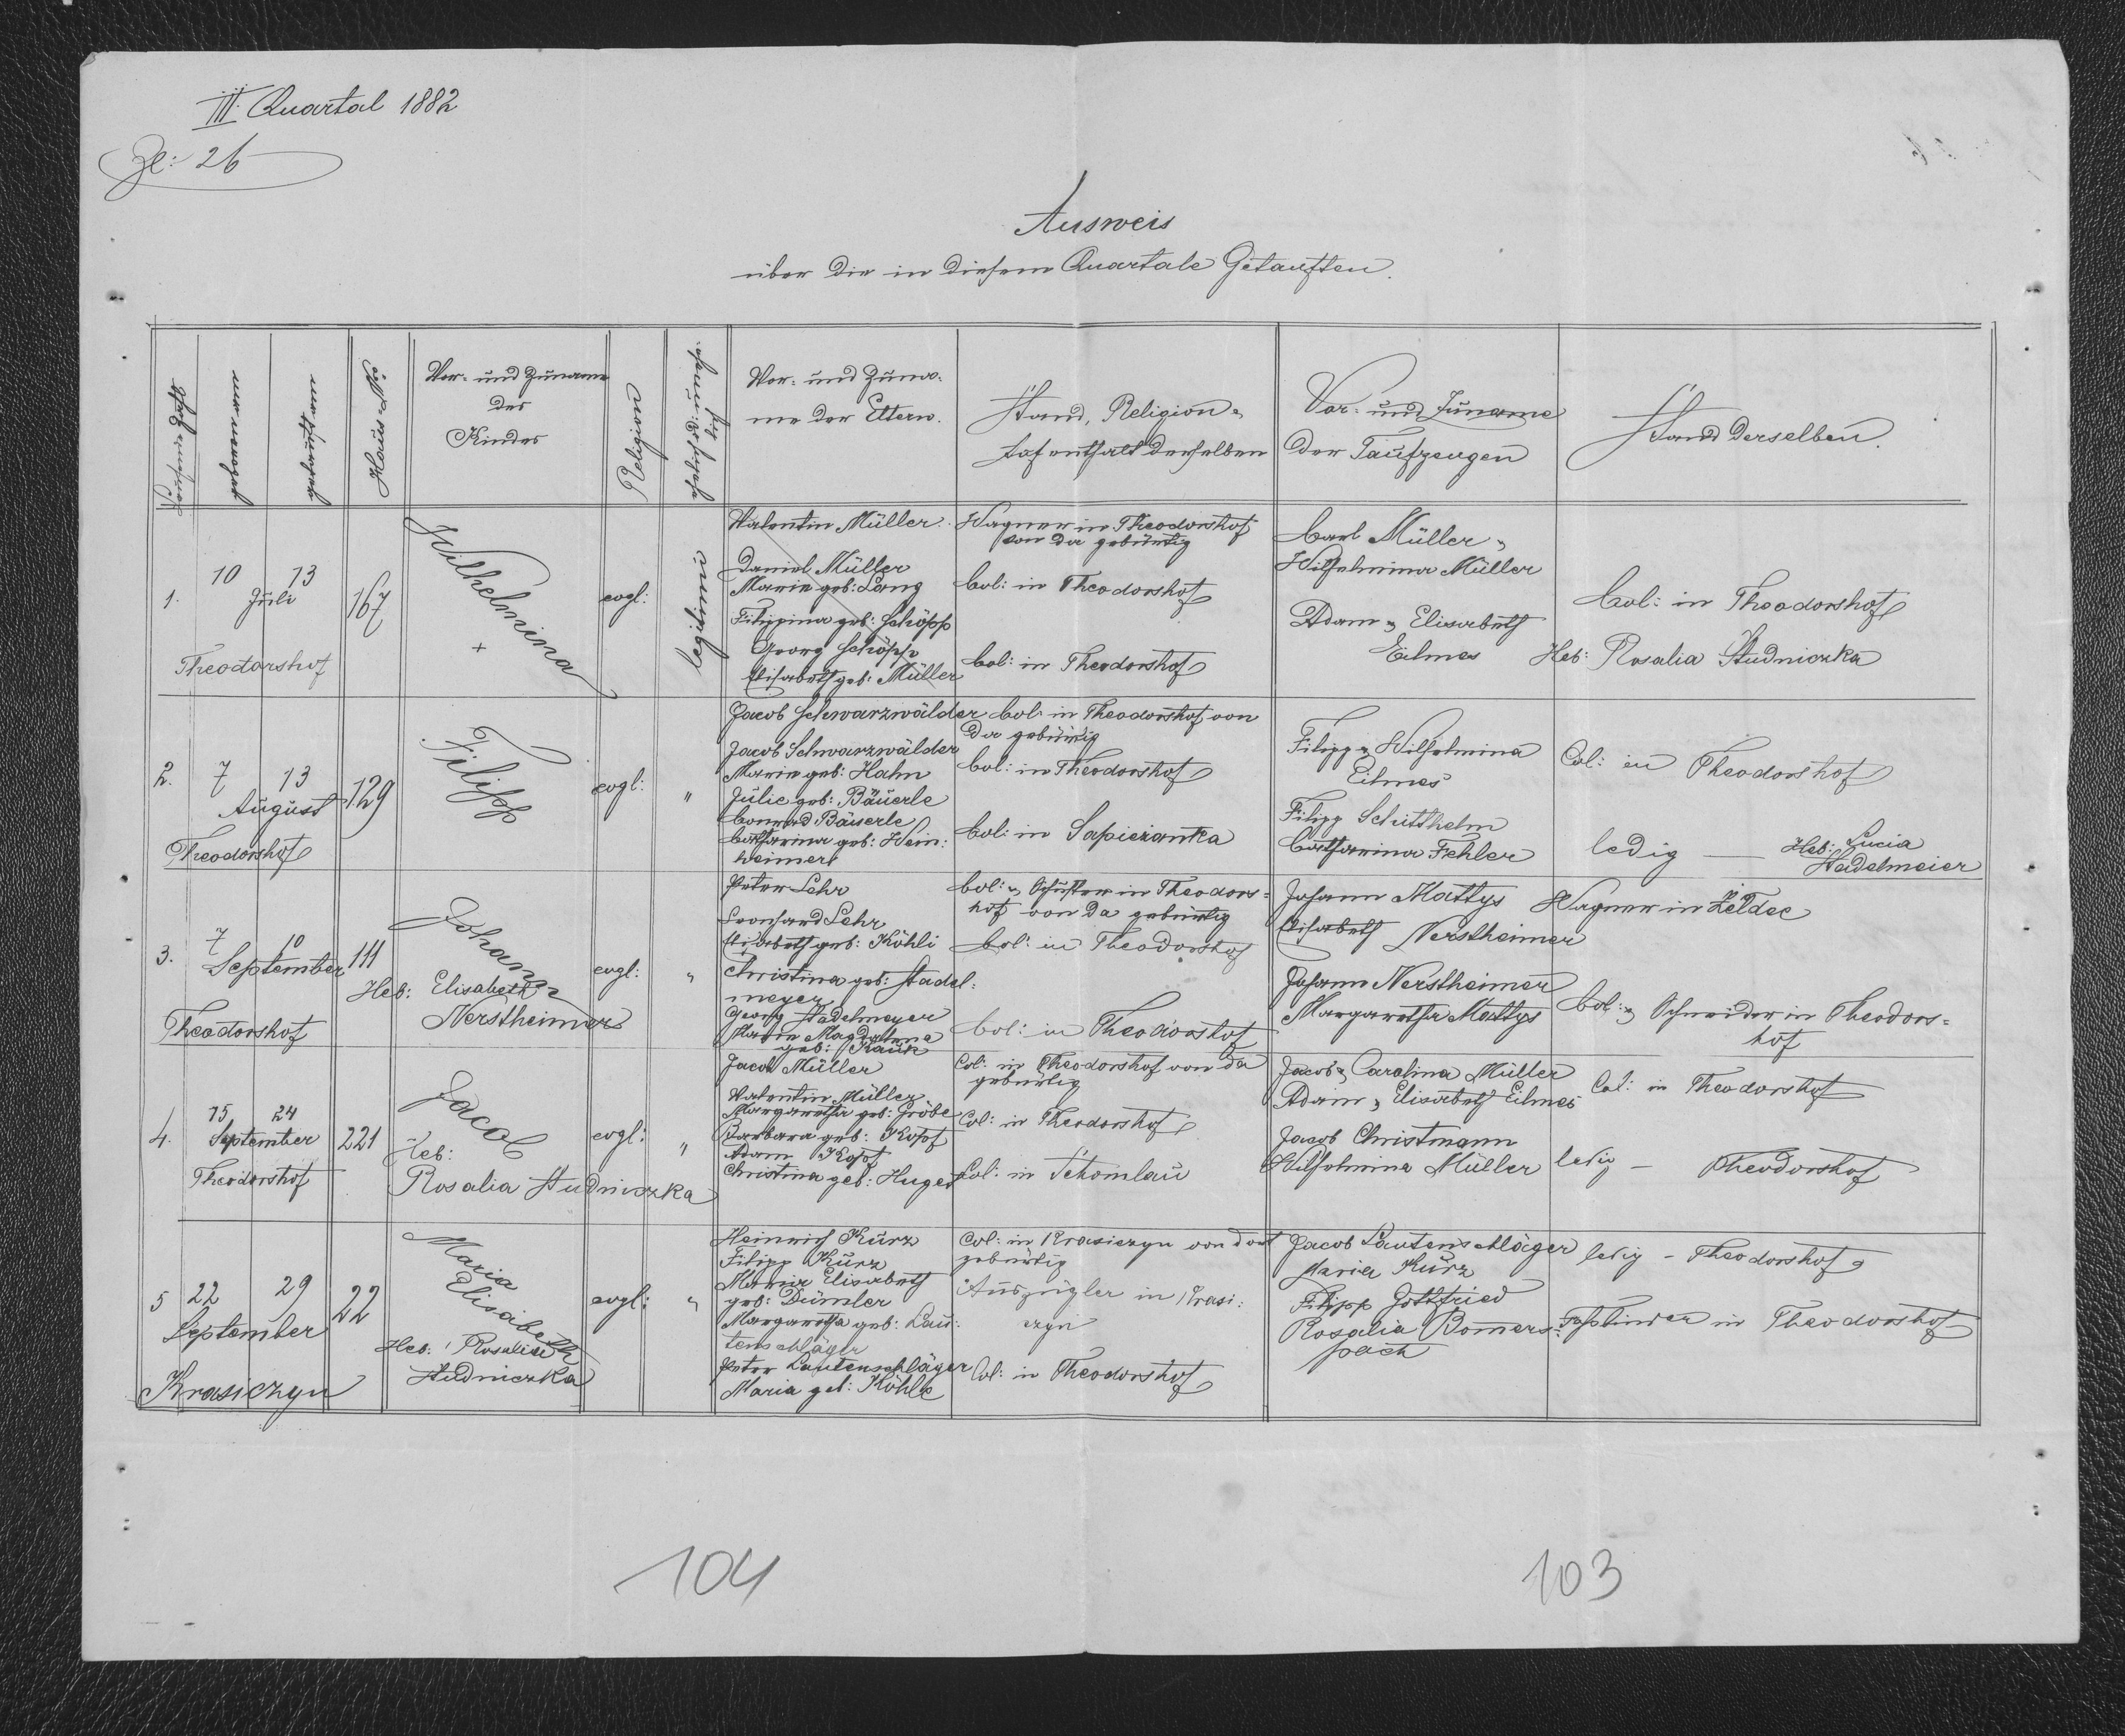 III. Quartal 1882
Zl: 26
Ausweis
über die in diesem Quartale Getauften.
Laufende Zahl
geboren am
getauft am
Haus-Nro
Vor- und Zuname
des
Kindes
Religion
Vor- und Zuna-
me der Eltern.
Stand, Religion &
Aufenthalt derselben
Vor- und Zuname
der Taufzeugen
Stand derselben.
1.
10 13
Juli
Theodorshof
167
Wilhelmina
+
evgl:
ehelich
Valentin Müller
Daniel Müller
Marie geb: Lang
Filippina geb: Schöpp
Georg Schöpp
Elisabeth geb: Müller
Wagner in Theodorshof
von da gebürtig
Col: in Theodorshof
Col: in Theodorshof
Carl Müller &
Wilhelmina Müller
Adam & Elisabeth
Eilmes
Col: in Theodorshof
Heb: Rosalia Studniczka
2.
7 13
August
Theodorshof
129
Filipp
evgl:
"
Jacob Schwarzwälder
Jacob Schwarzwälder
Marie geb: Hahn
Julie geb: Bäuerle
Conrad Bäuerle
Catharina geb: Wein:
heimer
Col: in Theodorshof von
da gebürtig
Col: in Theodorshof
Col: in Sapiezanka
Filipp & Wilhelmina
Eilmes
Filipp Schitthelm
Catharina Fehler
Col: in Theodorshof
ledig — Heb: Lucia
Stadelmeier
3.
7 10
September
Theodorshof
111
Johann
Heb: Elisabeth
Nerstheimer
evgl:
"
Peter Lehr
Leonhard Lehr
Elisabeth geb: Köhli
Christina geb: Stadel:
meyer
Georg Stadelmeyer
Marie Magdalena
geb: Kauk
Col: & Schuster in Theodors=
hof von da gebürtig
Col: in Theodorshof
Col: in Theodorshof
Johann Mattys
Elisabeth Nerstheimer
Johann Nerstheimer
Margaretha Mattys
Wagner in Żeldec
Col: & Schneider in Theodors=
hof
4.
15 24
September
Theodorshof
221
Jacob
Heb:
Rosalia Studniczka
evgl:
"
Jacob Müller
Valentin Müller
Margaretha geb: Gröbe
Barbara geb: Kopf
Adam Kopf
Christina geb: Huget
Col: in Theodorshof von da
gebürtig
Col: in Theodorshof
Col: in Schomlau
Jacob & Carolina Müller
Adam & Elisabeth Eilmes
Jacob Christmann
Wilhelmina Müller
Col: in Theodorshof
ledig — Theodorshof
5
22 29
September
Krasiczyn
22
Maria
Elisabeth
Heb: Rosalia
Studniczka
evgl:
"
Heinrich Kurz
Filipp Kurz
Maria Elisabeth
geb: Dümler
Margaretha geb: Lau:
tenschläger
Peter Lautenschläger
Maria geb: Köhle
Col: in Krasiczyn von dort
gebürtig
Auszügler in Krasi:
czyn
Col: in Theodorshof
Jacob Lautenschläger
Maria Kurz
Filipp Gottfried
Rosalia Bomers=
pach
ledig - Theodorshof
Faßbinder in Theodorshof
104
103